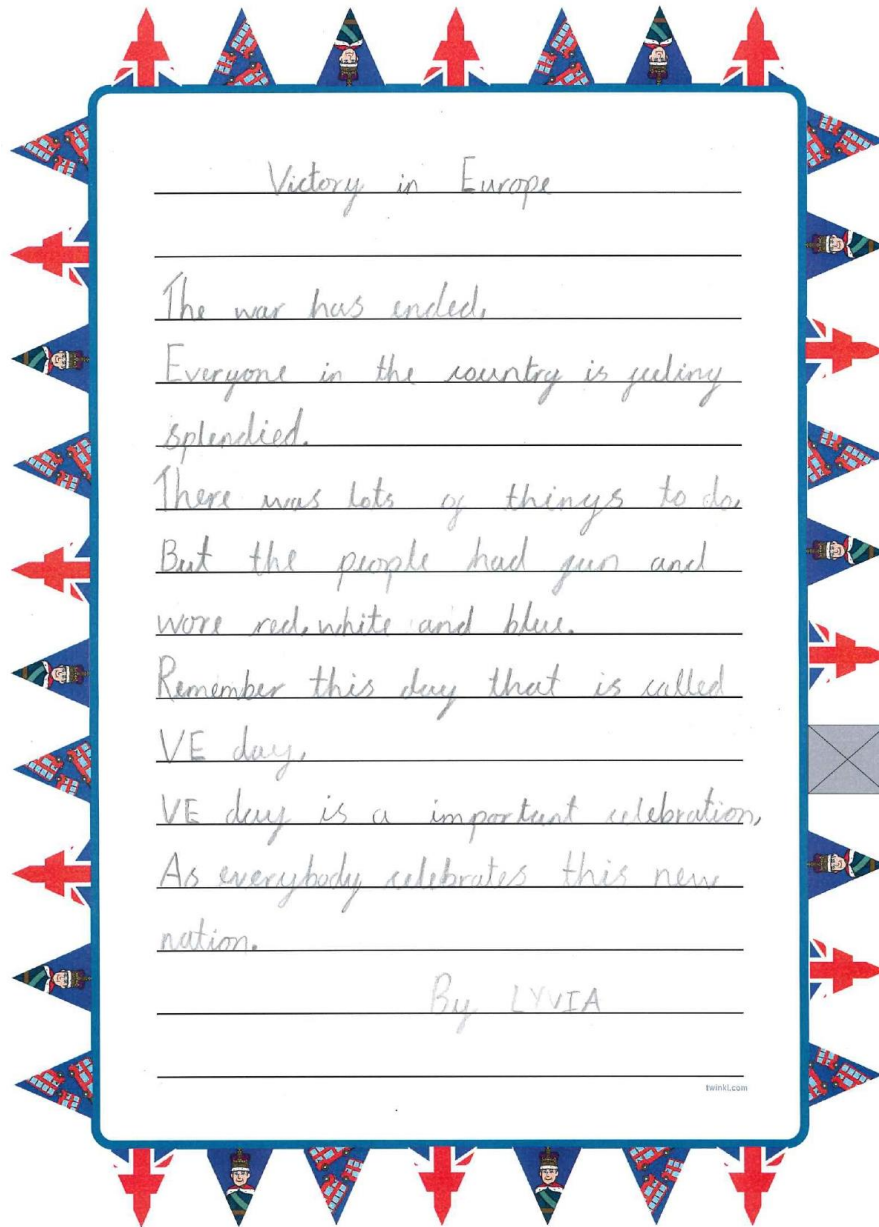 Victory in Europe
The war has ended,
Everyone in the country is feeling
splendied.
There was lots of things to do,
But the people had fun and
wore red, white and blue.
Remember this day that is called
VE day,
VE day is a important celebration,
As everybody celebrates this new
nation.
By LYVIA
twinkl.com